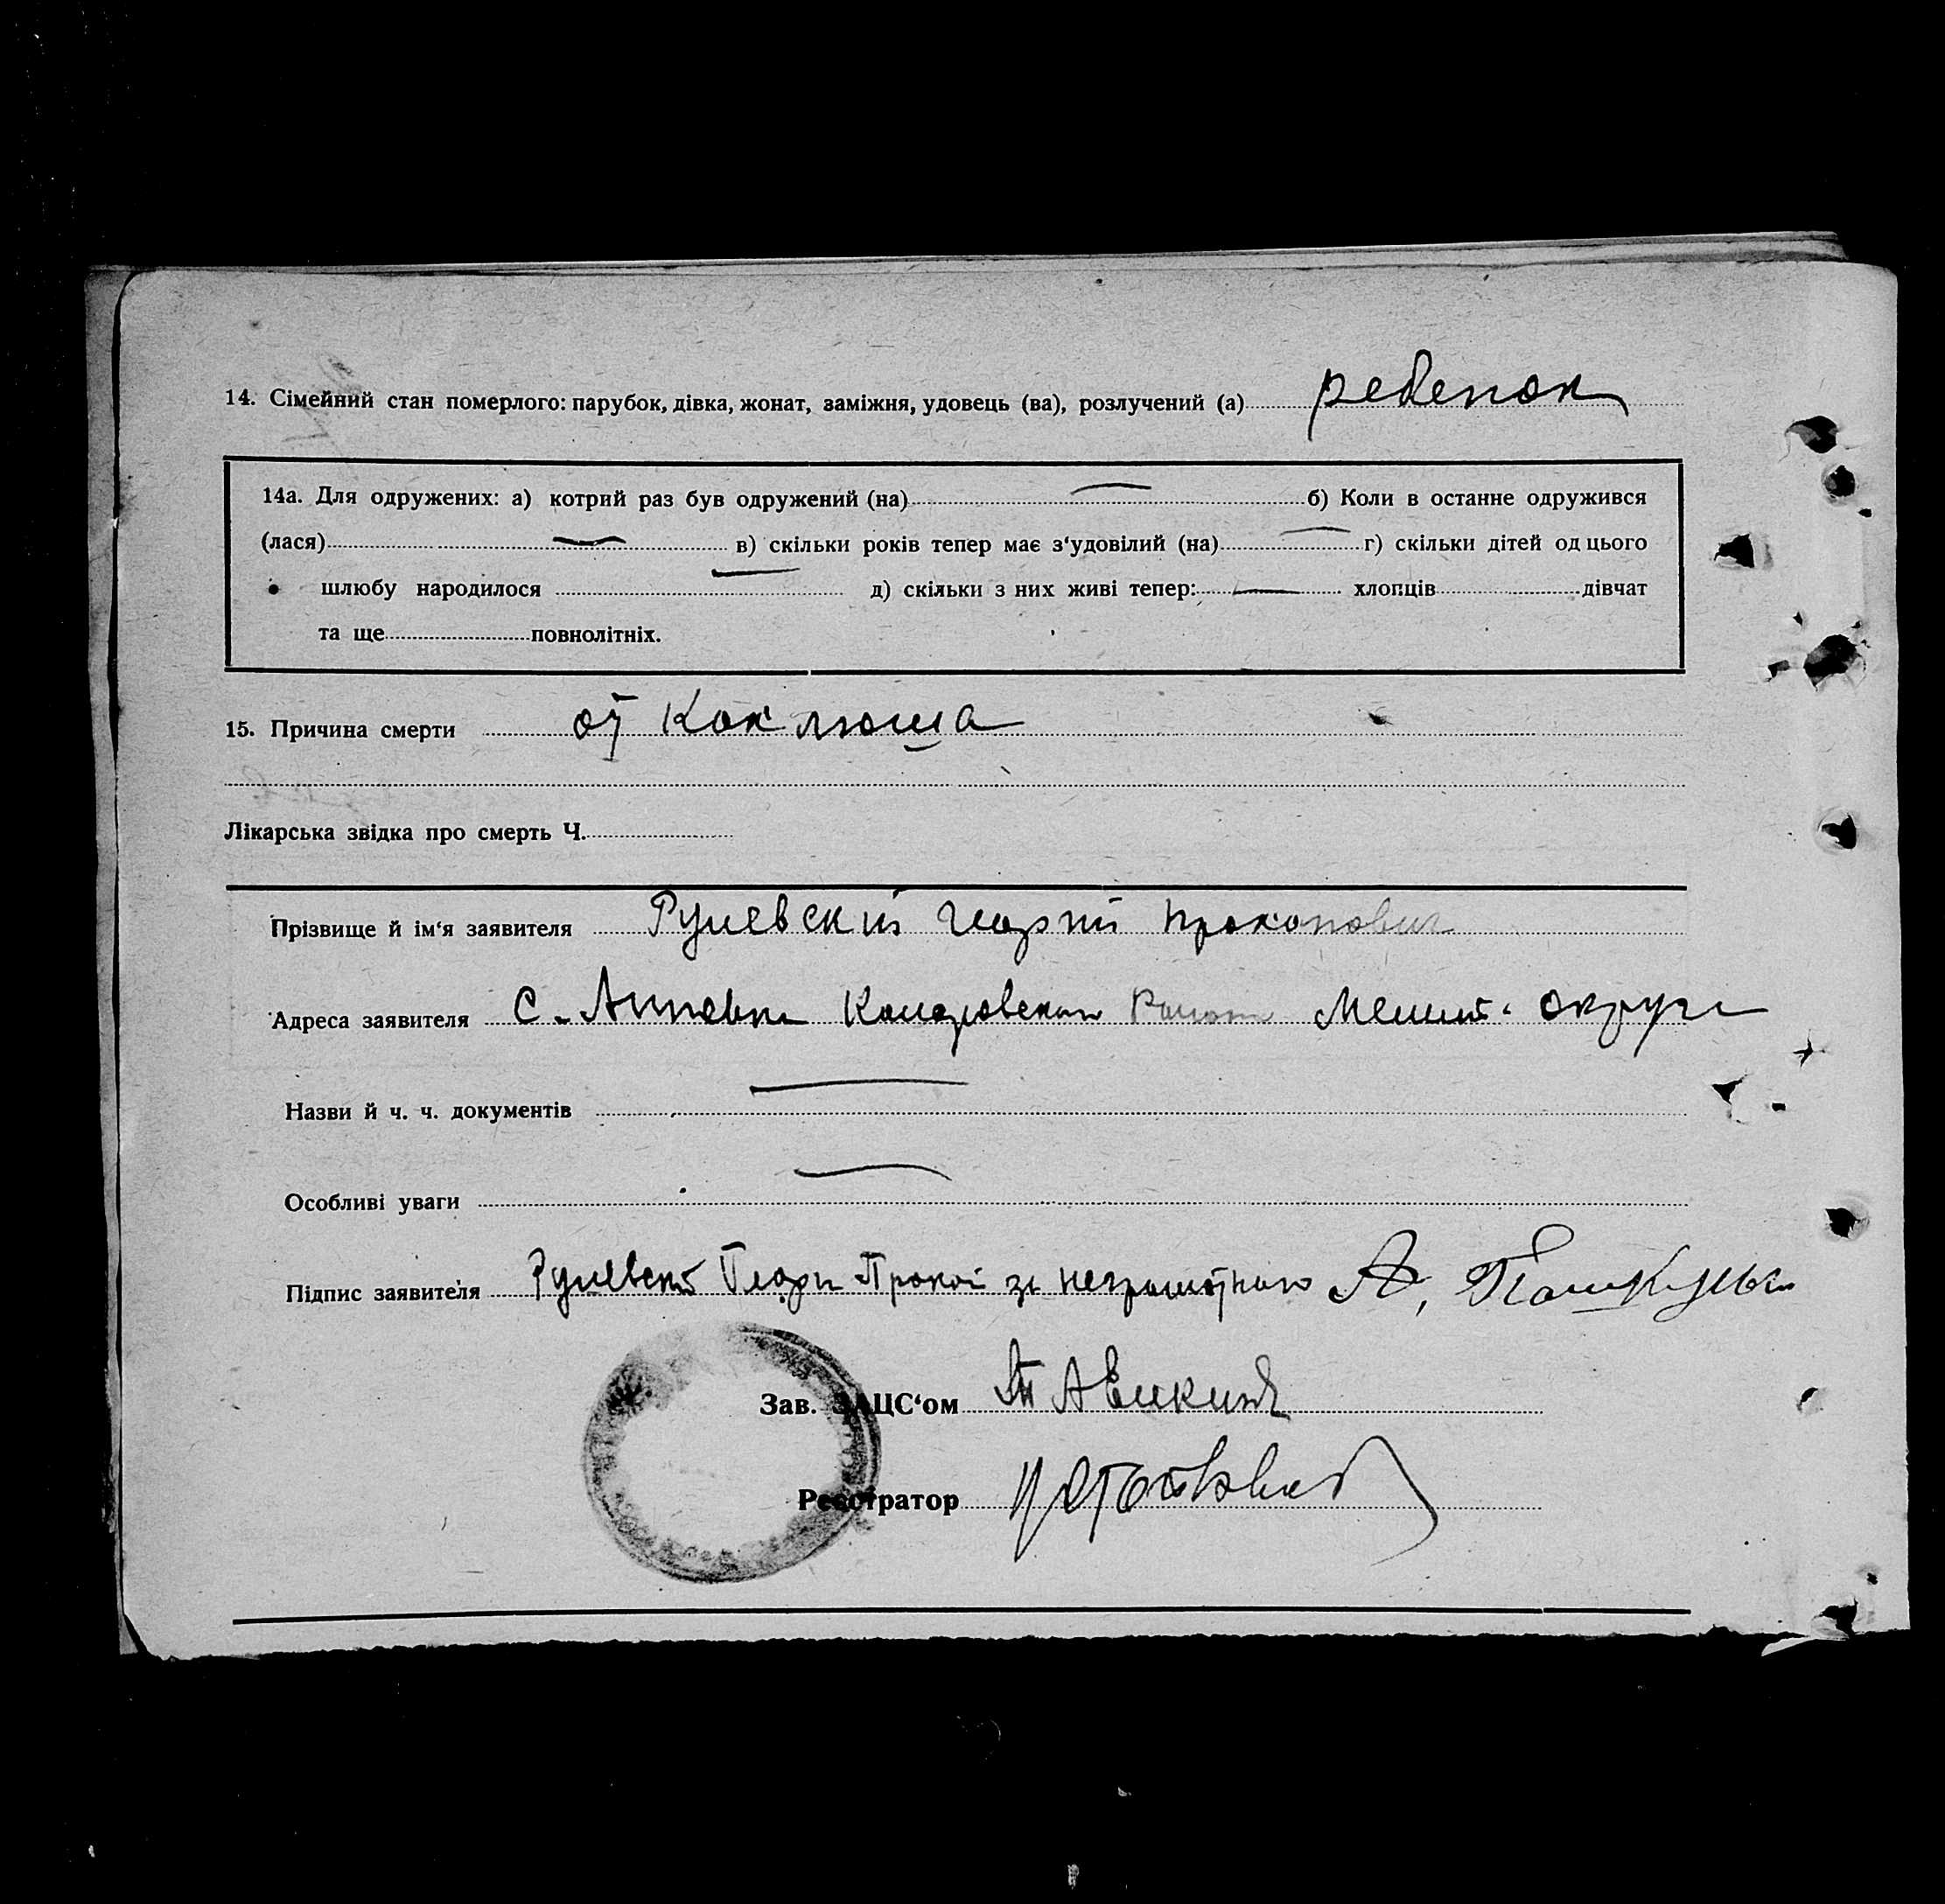 14. Сімейний стан померлого: парубок, дівка, жонат, заміжня, удовець (ва), розлучений (а) ребенок
14а. Для одружених: а) котрий раз був одружений (на) — б) Коли в останнє одружився
(лася) — в) скільки років тепер має з‘удовілий (на) — г) скільки дітей од цього
шлюбу народилося — д) скільки з них живі тепер: — хлопців дівчат
та ще повнолітніх.
15. Причина смерти от Коклюша
Лікарська звідка про смерть Ч.
Прізвище й ім‘я заявителя Прокопович
Адреса заявителя с. округи
Назви й ч. ч. документів —
Особливі уваги —
Підпис заявителя за неграмотного А,
Зав. ЗАЦС‘ом
Реєстратор